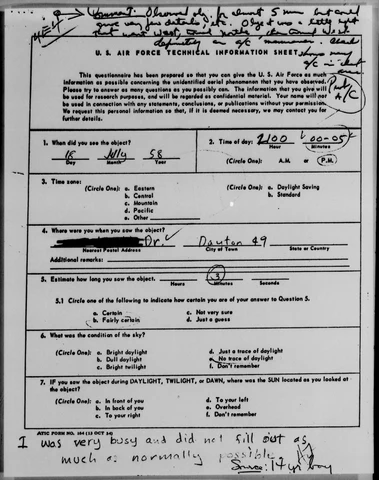 Comment: Observed obj. for about 5 min but could
give very few details etc. Object was a
that went West, and North, then and West
definitely an a/c maneuver. Check
shows many
a/c in
area.
U. S. AIR FORCE TECHNICAL INFORMATION SHEET
This questionnaire has been prepared so that you can give the U. S. Air Force as much
information as possible concerning the unidentified aerial phenomenon that you have observed.
Please try to answer as many questions as you possibly can. The information that you give will
be used for research purposes, and will be regarded as confidential material. Your name will not
be used in connection with any statements, conclusions, or publications without your permission.
We request this personal information so that, if it is deemed necessary, we may contact you for
further details.
A/C
1. When did you see the object?
18 July 58
Day Month Year
2. Time of day: 2100 00-05
Hour Minutes
(Circle One): A.M. or P.M.
3. Time zone:
(Circle One): a. Eastern
b. Central
c. Mountain
d. Pacific
e. Other
(Circle One): a. Daylight Saving
b. Standard
4. Where were you when you saw the object?
Dr. Dayton 49
Nearest Postal Address City or Town State or Country
Additional remarks:
5. Estimate how long you saw the object. 3
Hours Minutes Seconds
5.1 Circle one of the following to indicate how certain you are of your answer to Question 5.
a. Certain c. Not very sure
b. Fairly certain d. Just a guess
6. What was the condition of the sky?
(Circle One): a. Bright daylight d. Just a trace of daylight
b. Dull daylight e. No trace of daylight
c. Bright twilight f. Don't remember
7. IF you saw the object during DAYLIGHT, TWILIGHT, or DAWN, where was the SUN located as you looked at
the object?
(Circle One): a. In front of you d. To your left
b. In back of you e. Overhead
c. To your right f. Don't remember
ATIC FORM NO. 164 (13 OCT 54)
I was very busy and did not fill out as
much as normally possible
14 yr boy